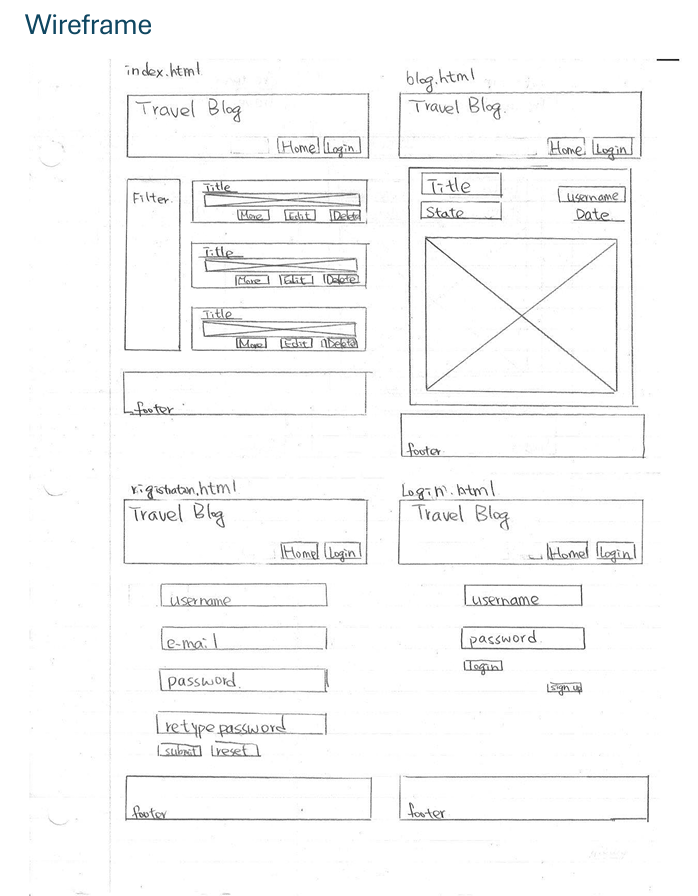 Wireframe
index.html
Travel Blog
Home Login
Filter
Title
More Edit Delete
Title
More Edit Delete
Title
More Edit Delete
footer
blog.html
Travel Blog
Home Login
Title
username
State
Date
footer
rigistraton.html
Travel Blog
Home Login
username
e-mail
password
retype password
submit reset
footer
Login.html
Travel Blog
Home Login
username
password
login
sign up
footer